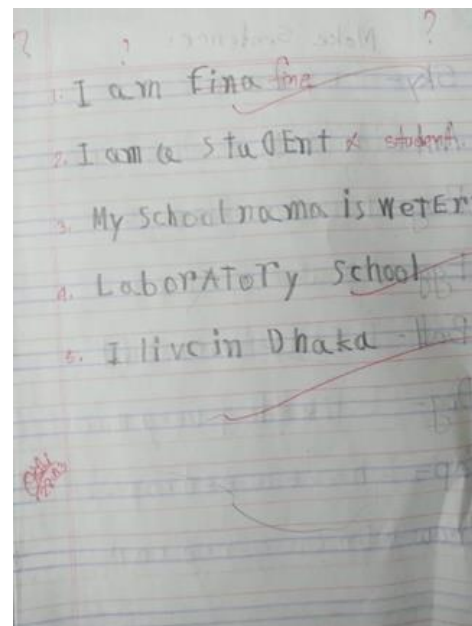 ? ? ?
1. I am fina fine
2. I am a stuDEnt × student.
3. My School nama is weter
4. LaborAToTy School
5. I live in Dhaka